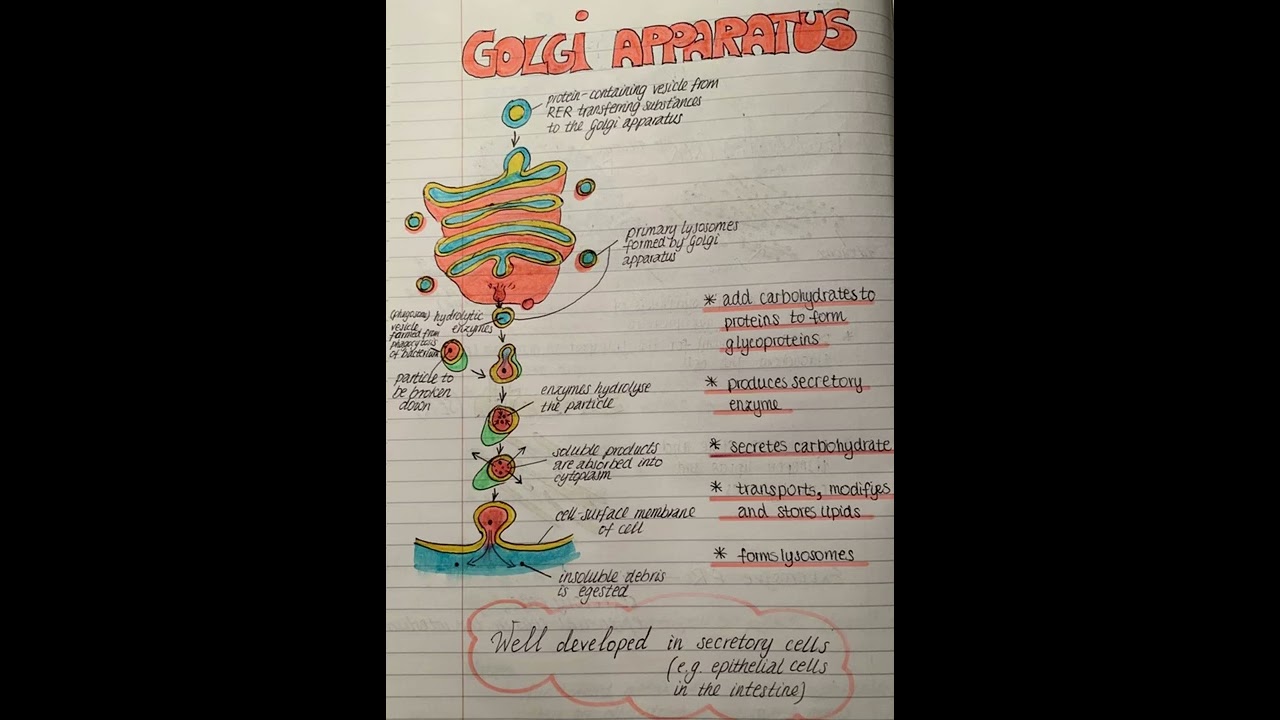 GOLGI APPARATUS
protein-containing vesicle from
RER transferring substances
to the Golgi apparatus
primary lysosomes
formed by Golgi
apparatus
(phagosome)
vesicle
formed from
phagocytosis
of bacterium
hydrolytic
enzymes
particle to
be broken
down
enzymes hydrolyse
the particle
soluble products
are absorbed into
cytoplasm
cell-surface membrane
of cell
insoluble debris
is egested
* add carbohydrates to
proteins to form
glycoproteins
* produces secretory
enzyme
* secretes carbohydrate
* transports, modifyes
and stores lipids
* forms lysosomes
Well developed in secretory cells
(e.g. epithelial cells
in the intestine)